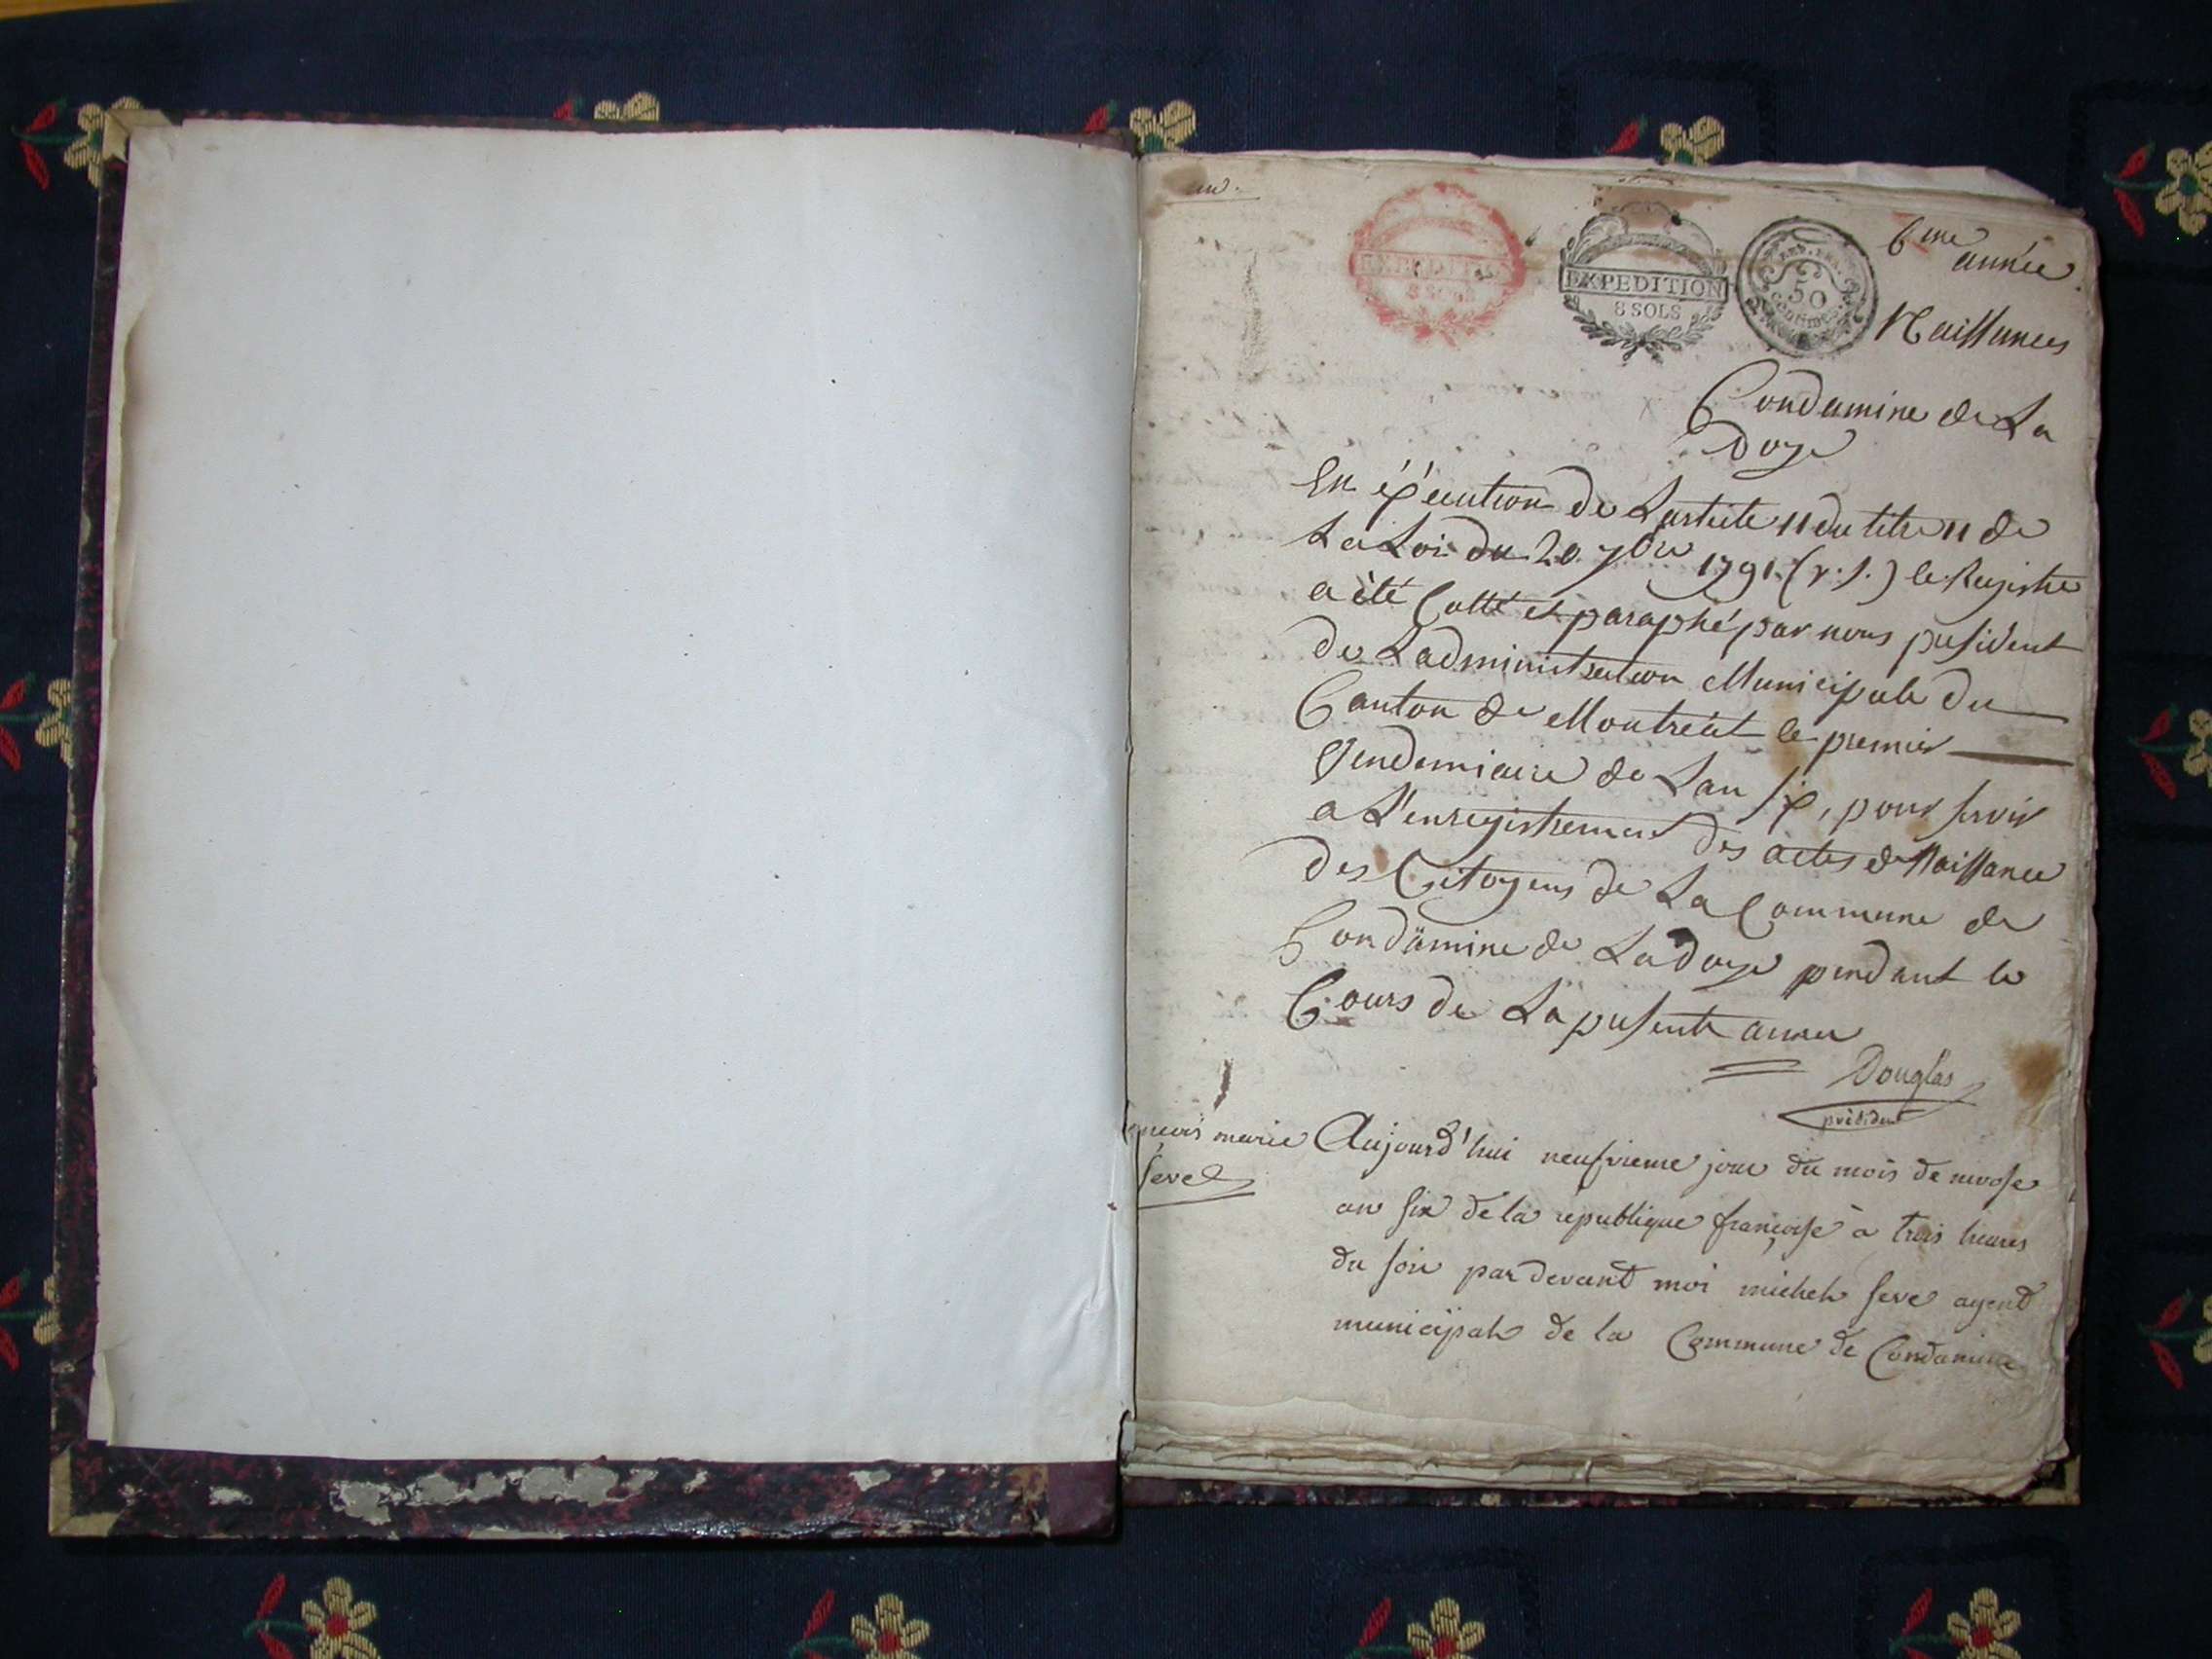 un.
EXPEDITION
8 SOLS
EXPEDITION
8 SOLS
REP. FRA.
50
centimes
6me
année.
Naissances
Condamine de La
Doye
En éxécution de Larticle 11 du titre 11 de
La Loi du 20. 7bre 1791. (v. s.) le Registre
a été Cotté et paraphé par nous president
de Ladministration Municipale du
Canton de Montréal le premier
Vendemiaire de Lan six, pour servir
a L'enregistrement des actes de Naissance
des Citoyens de La Commune de
Condamine de Ladoye pendant le
Cours de La presente année
Douglas
président
marie
seve
Aujourd'hui neufvieme jour du mois de nivose
an six de la république françoise à trois heures
du soir par devant moi michel seve agent
municipal de la Commune de Condamine